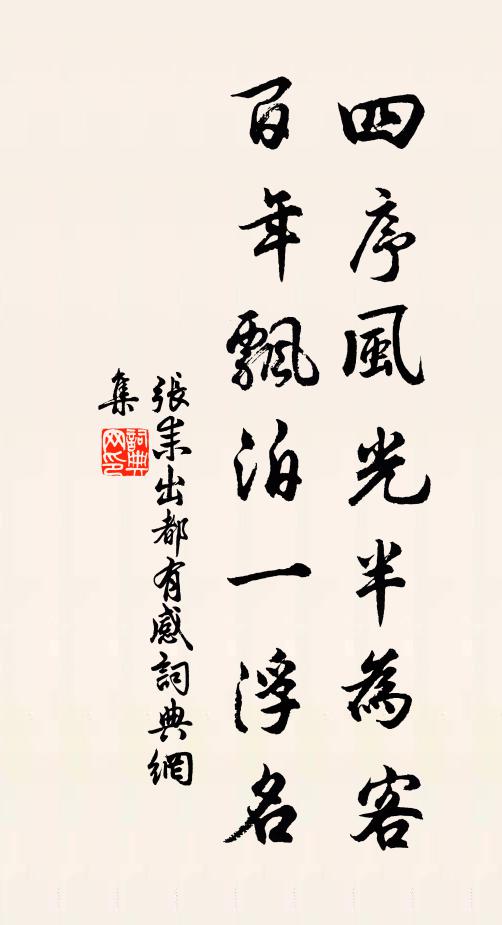 四序風光半為客
百年飄泊一浮名
張耒出都有感詞典網
集
詞典
网印